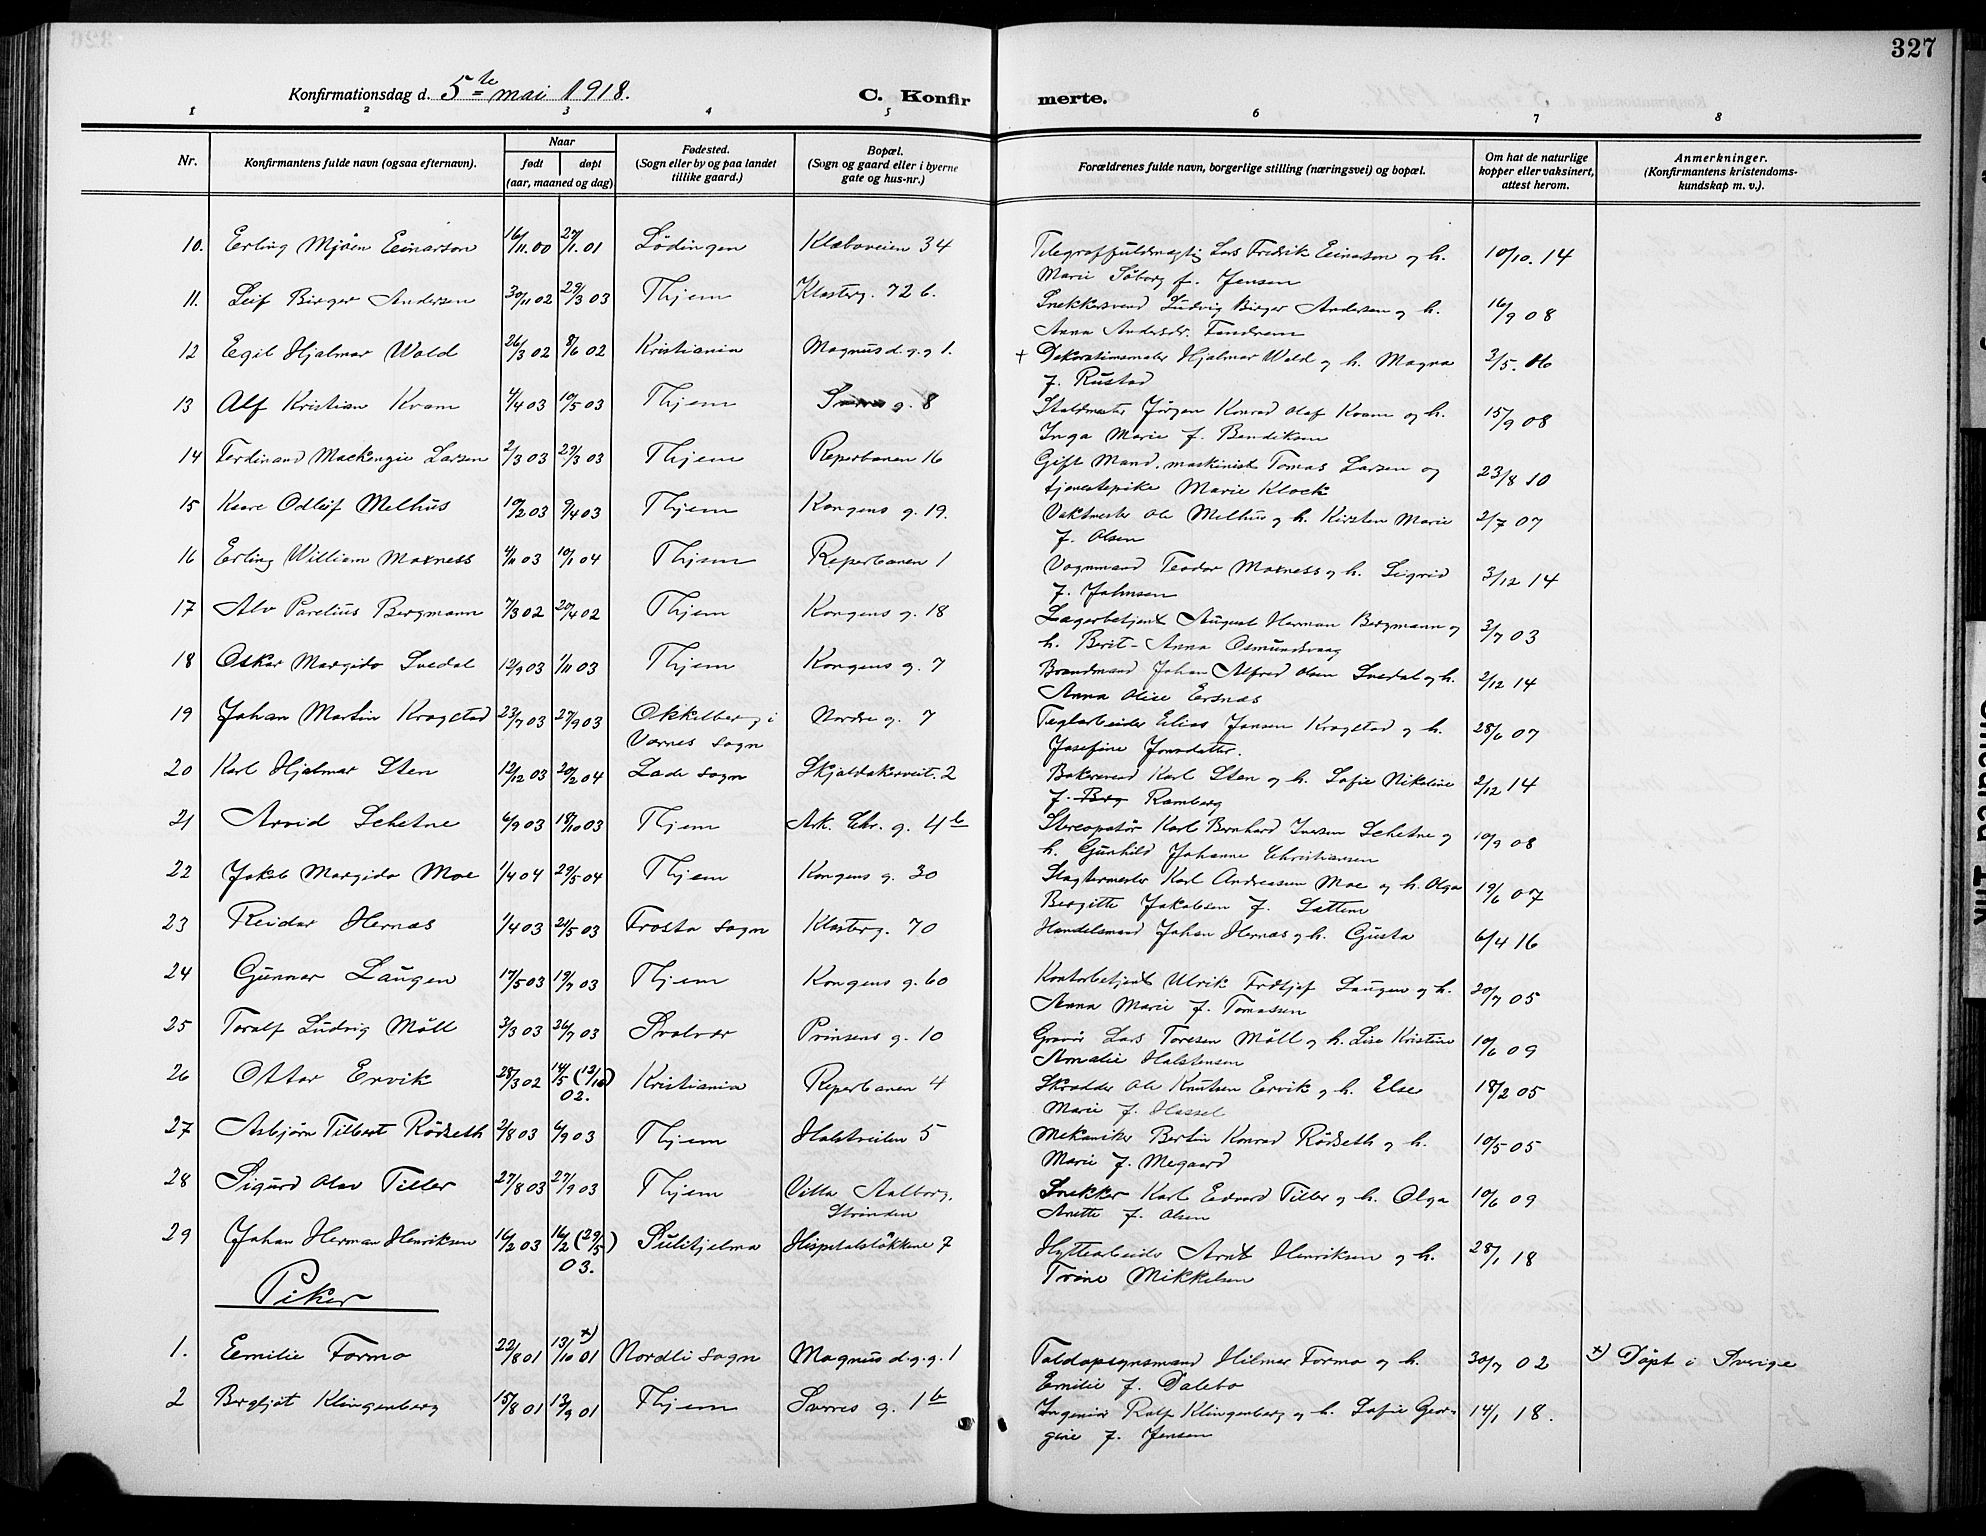 327
Konfirmationsdag d. 5te mai 1918.
C. Konfir merte.
1 2 3 4 5 6 7 8
Nr.
Konfirmantens fulde navn (ogsaa efternavn).
Naar
født døpt
(aar, maaned og dag)
Fødested.
(Sogn eller by og paa landet
tillike gaard.)
Bopæl.
(Sogn og gaard eller i byerne
gate og hus-nr.)
Forældrenes fulde navn, borgerlige stilling (næringsvei) og bopæl.
Om hat de naturlige
kopper eller vaksinert,
attest herom.
Anmerkninger.
(Konfirmantens kristendoms-
kundskap m. v.).
10. Erling Mjøen Einarson 16/11.00 27/1.01 Lødingen Klæboveien 34 Telegraffuldmægtig Lars Fredrik Einarson og h. 10/10.14
Marie Søborg f. Jensen
11. Leif Birger Andersen 30/11 02 29/3 03 Thjem Klosterg. 72 b. Snekkersvend Ludvig Birger Andersen og h. 16/9 08
Anna Andersdr.
12 Egil Hjalmar Wold 26/3 02 8/6 02 Kristiania Magnus d. g. g 1. + Dekorationsmaler Hjalmar Wold og h. Magna 3/5.06
f. Rustad
13 Alf Kristian Kvam 4/4 03 10/5 03 Thjem g. 8 Jørgen Konrad Olaf Kvam og h. 15/9 08
Inga Marie f. Bendiksen
14 Ferdinand Mackenzie Larsen 2/3 03 29/3 03 Thjem Reperbanen 16 Gift Mand, maskinist Tomas Larsen og 23/8 10
tjenestepike Marie Klock
15 Kaare Odleif Melhus 10/2 03 9/4 03 Thjem Kongens g. 19. Vaktmester Ole Melhus og h. Kirsten Marie 2/7 07
f. Olsen
16 Erling William Moxness 4/11 03 10/1 04 Thjem Reperbanen 1 Vognmand Teodor Moxness og h. Sigrid 3/12 14
f. Johnsen
17 Alv Parelius Bergmann 7/3 02 20/4 02 Thjem Kongens g. 18 Lagerbetjent August Herman Bergmann og 3/7 03
h. Berit-Anna Osmundsvaag
18 Oskar Margido Svedal 12/9 03 1/11 03 Thjem Kongens g. 7 Brandmand Johan Alfred Olsen Svedal og h. 2/12 14
Anna Olise Ersnæs
19 Johan Martin Kragstad 23/7 03 27/9 03 Okkelberg i Nordre g. 7 Teglarbeider Elias Jansen Kragstad og h. 28/6 07
Værnes sogn Josefine Jonsdatter.
20 Karl Hjalmar Sten 12/12 03 20/2 04 Lade sogn Skjeldakerveit. 2 Bakersvend Karl Sten og h. Sofie Nikoline 2/12 14
f. Berg Ramberg
21 Arvid Schetne 6/9 03 18/10 03 Thjem Ark. Chr. g. 4b Stereopatør Karl Bernhard Iversen Schetne og 10/9 08
h. Gunhild Johanne Christiansen
22 Jakob Margido Moe 1/4 04 29/5 04 Thjem Kongens g. 30 Slagtermester Karl Andreassen Moe og h. Olga 19/6 07
Bergitte Jakobsen f. Sættem
23 Reidar Hernæs 1/4 03 21/5 03 Frosta sogn Klosterg. 70 Handelsmand Johan Hernæs og h. Gusta 6/4 16
24 Gunnar Laugen 17/5 03 19/7 03 Thjem Kongens g. 60 Kontorbetjent Ulrik Fridtjof Laugen og h. 20/7 05
Anna Marie f. Tomassen
25 Toralf Ludvig Møll 3/3 03 26/7 03 Svolvær Prinsens g. 10 Gravør Lars Toresen Møll og h. Lise Kristine 10/6 09
Amalie Halstensen
26 Ottar Ervik 28/3 02 14/5 (12/10) Kristiania Reperbanen 4 Skrædder Ole Knutsen Ervik og h. Else 18/2 05
02. Marie f. Hassel
27 Asbjørn Tilbert Rødseth 2/8 03 6/9 03 Thjem Halsetveien 5 Mekaniker Bertin Konrad Rødseth og h. 10/5 05
Marie f. Megaard
28 Sigurd Olav Tiller 27/8 03 27/9 03 Thjem Villa Aalborg, Snekker Karl Edvard Tiller og h. Olga 10/6 09
Strinden Anette f. Olsen
29 Johan Herman Henriksen 16/2 03 16/2 (29/5) Sulitjelma Hospitalsløkkene 7 Hyttearbeider Arnt Henriksen og h. 28/1 18
03. Trine Mikkelsen
Piker
1. Emilie Formo 22/8 01 13/10 01 x) Nordli sogn Magnus d. g. g. 1 Toldopsynsmand Hilmar Formo og h. 30/7 02 x) Døpt i Sverige
Emilie f. Dalebo
2 Bergljot Klingenberg 15/8 01 13/9 01 Thjem Sverres g. 1b Ingeniør Rolf Klingenberg og h. Sofie Geor- 14/1 18.
gine f. Jensen